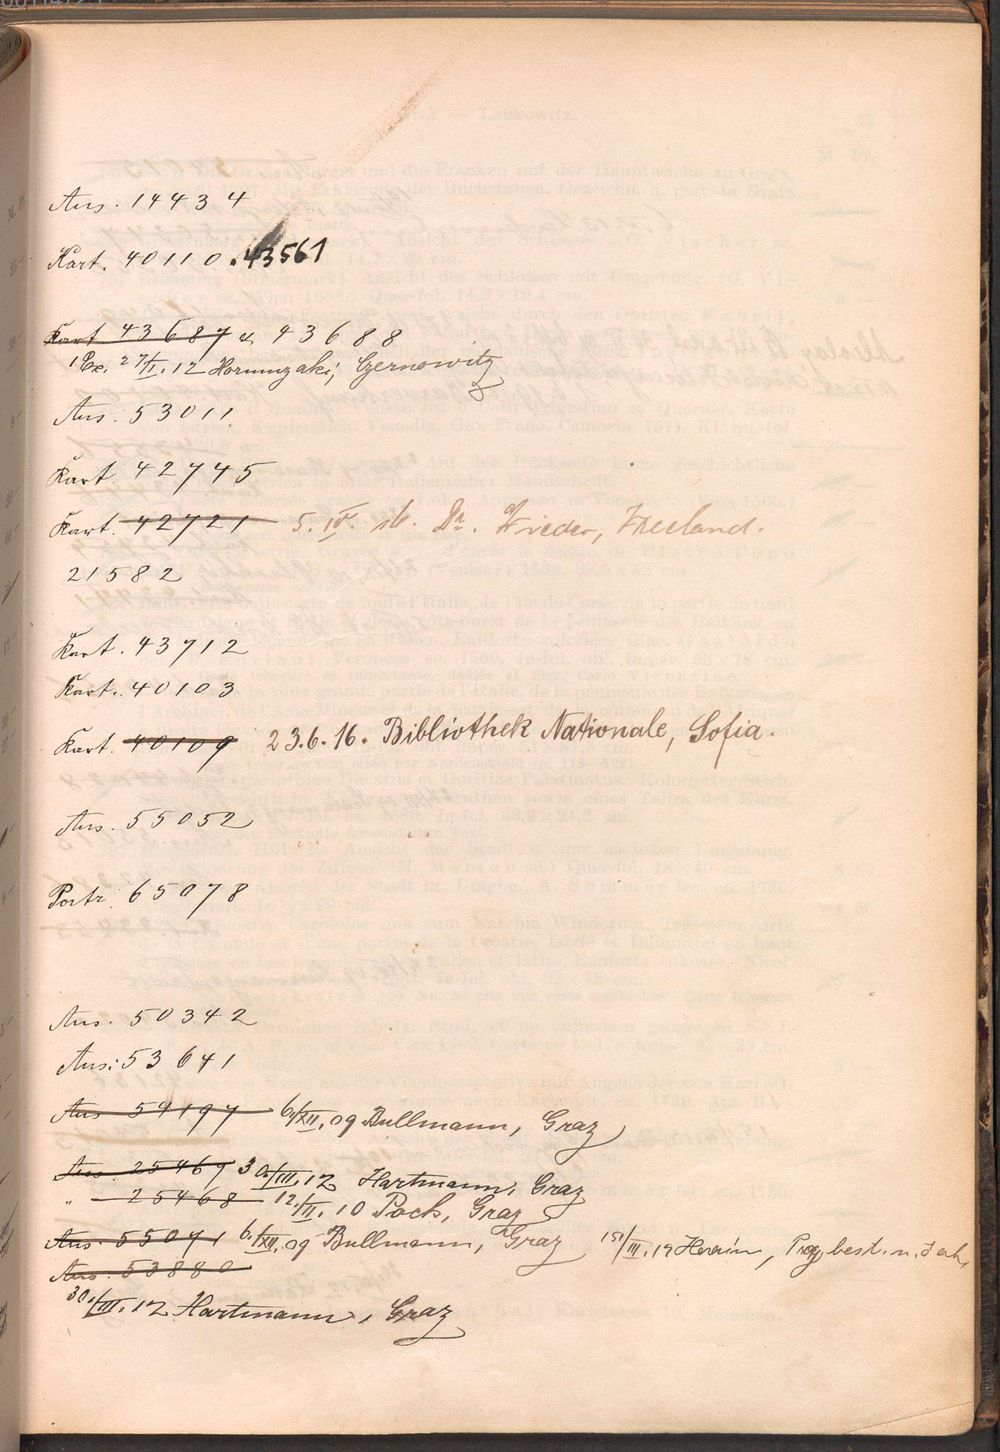 Ans. 14434
Kart. 40110. 43561
Kart 43687 & 43688
1 Ex. 27/I. 12 Hormuzaki, Czernowitz
Ans. 53011
Kart. 42745
Kart. 42721 5. IV. 16. Dr. Wieder,
21582
Kart. 43712
Kart. 40103
Kart. 40109 23.6.16. Bibliothek Nationale, Sofia.
Ans. 55052
Portr. 65078
Ans. 50342
Ans. 53641
Ans 59197 6/XII. 09 Bullmann, Graz
Ans. 25469 30/III. 12 Hartmann, Graz
" 25468 12./II. 10 Pock, Graz
Ans. 55071 6./XII. 09 Bullmann, Graz 15/III. 19 best. n.
Ans. 53880
30./III. 12 Hartmann, Graz